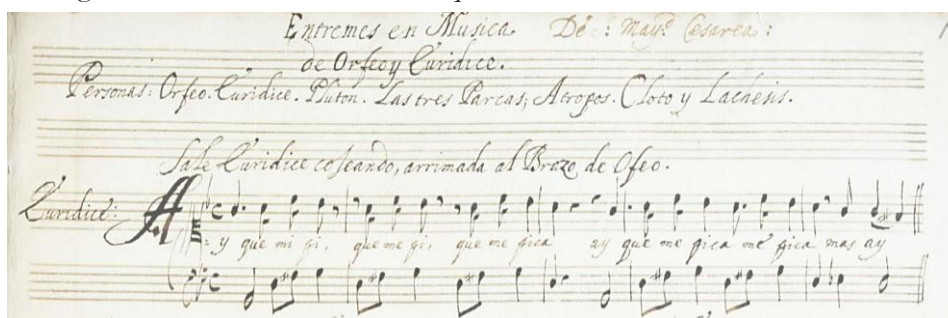 Entremes en Musica. De S: Mag.d Cesarea:
de Orfeo y Euridice.
Personas: Orfeo. Euridice. Pluton. Las tres Parcas; Atropos. Cloto y Lachesis.
Sale Euridice cojeando, arrimada al Brazo de Ofeo.
Euridice:
Ay que mi pi, que me pi, que me pica ay que me pica me pica mas ay